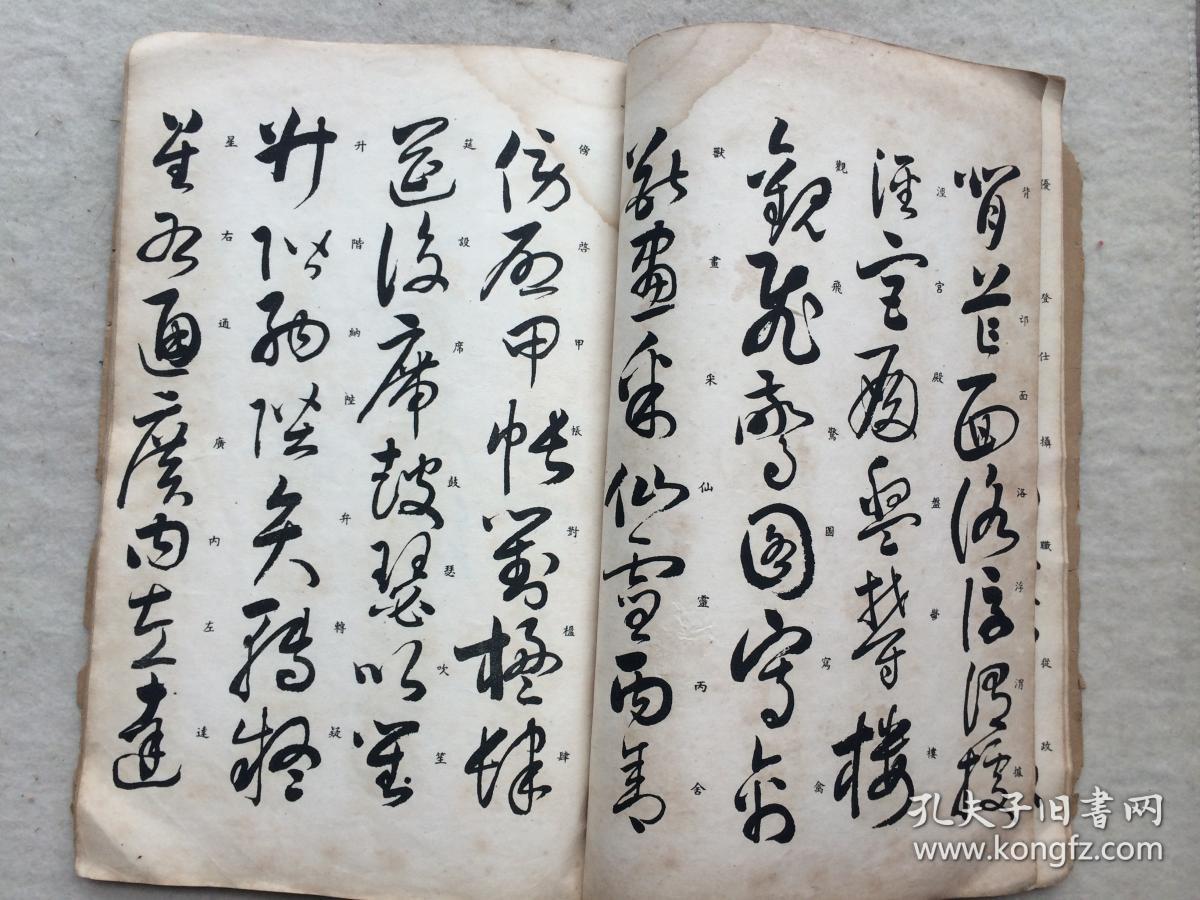 優登仕攝職從政
背邙面洛浮渭據
涇宮殿盤鬱樓
觀飛驚圖寫禽
獸畫采仙靈丙舍
傍啓甲帳對楹肆
筵設席鼓瑟吹笙
升階納陛弁轉疑
星右通廣内左達
孔夫子旧书网
www.kongfz.com